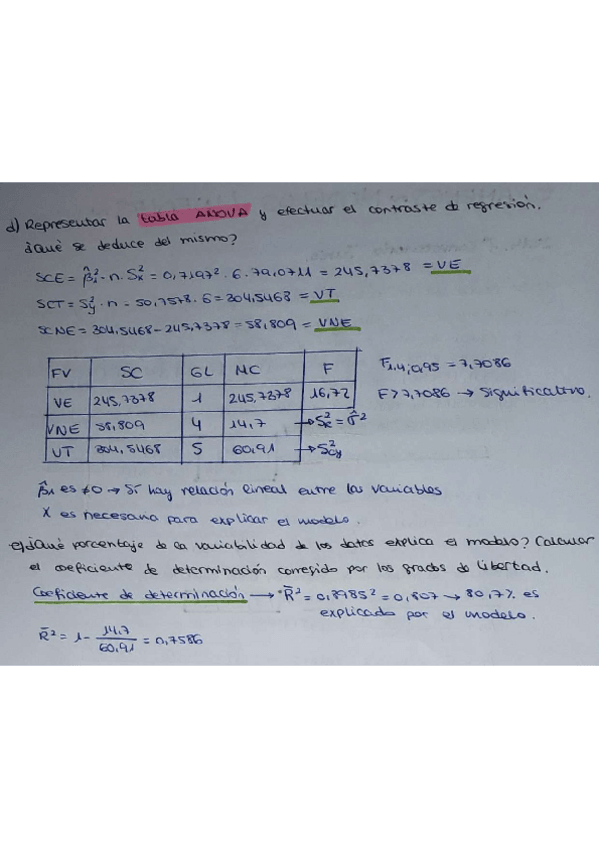 d) Representar la tabla ANOVA y efectuar el contraste de regresión.
¿Qué se deduce del mismo?
SCE = β̂₁² · n · Sx² = 0,7197² · 6 · 79,0711 = 245,7378 = VE
SCT = Sy² · n - 50,7578 · 6 = 304,5468 = VT
SCNE = 304,5468 - 245,7378 = 58,809 = VNE
FV SC GL MC F
VE 245,7378 1 245,7378 16,72
VNE 58,809 4 14,7 → Se² = σ̂²
VT 304,5468 5 60,91 → Scy²
F1,4;0,95 = 7,7086
F > 7,7086 → Significativo.
β̂₁ es ≠ 0 → Sí hay relación lineal entre las variables
X es necesaria para explicar el modelo.
e) ¿Qué porcentaje de la variabilidad de los datos explica el modelo? Calcular
el coeficiente de determinación corregido por los grados de libertad.
Coeficiente de determinación → R² = 0,8985² = 0,807 → 80,7% es
explicado por el modelo.
R̄² = 1 - 14,7 / 60,91 = 0,7586